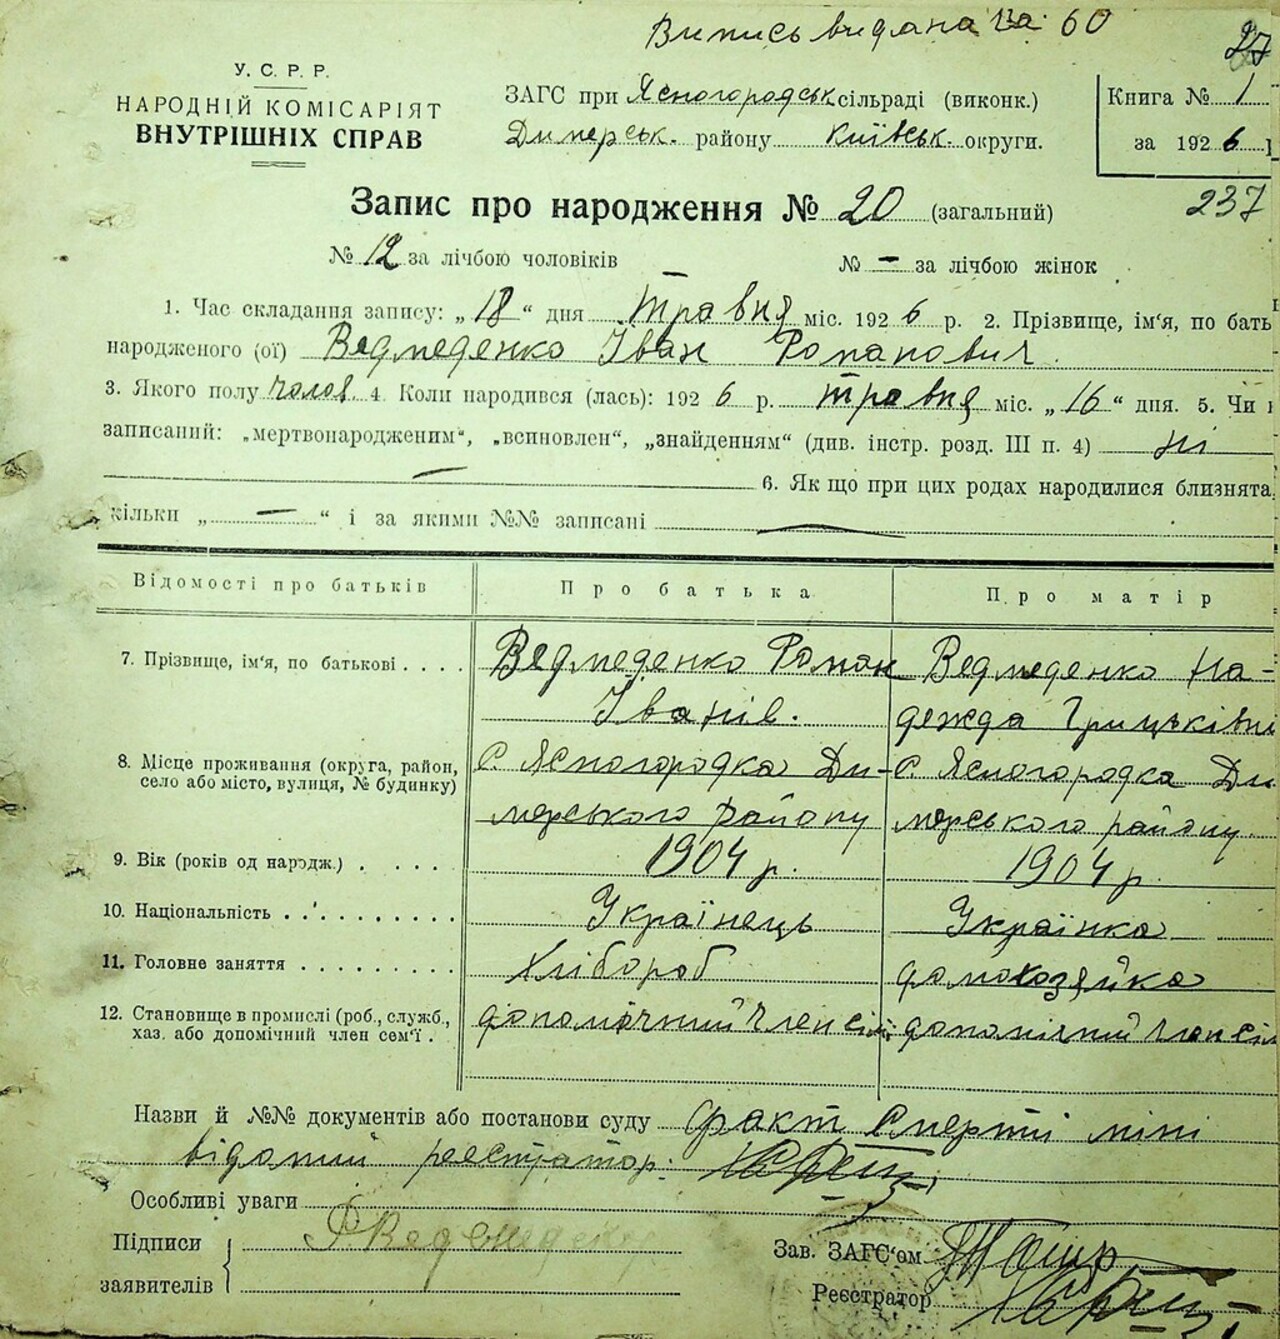 Випись видана за 60
27
У. С. Р. Р.
НАРОДНІЙ КОМІСАРІЯТ
ВНУТРІШНІХ СПРАВ
ЗАГС при Ясногородськ. сільраді (виконк.)
Димерськ. району Київськ. округи.
Книга № 1
за 1926
Запис про народження № 20 (загальний)
237
№ 12 за лічбою чоловіків № – за лічбою жінок
1. Час складання запису: „18“ дня травня міс. 1926 р. 2. Прізвище, ім'я, по бать
народженого (ої) Ведмеденко Іван Романович.
3. Якого полу чолов. 4. Коли народився (лась): 1926 р. травня міс. „16“ дня. 5. Чи
записаний: „мертвонародженим“, „всиновлен“, „знайденням“ (див. інстр. розд. III п. 4) ні
— 6. Як що при цих родах народилися близнята,
кільки „—“ і за якими №№ записані —
Відомості про батьків Про батька Про матір
7. Прізвище, ім'я, по батькові . . . . Ведмеденко Роман Ведмеденко На-
Іванів. дежда Грицьківна
8. Місце проживання (округа, район, с. Ясногородка Ди- с. Ясногородка Ди
село або місто, вулиця, № будинку) мерського району мерського району.
9. Вік (років од народж.) . . . . 1904 р. 1904 р.
10. Національність . . . . . . . . . Українець Українка
11. Головне заняття . . . . . . . . . Хлібороб домохозяйка
12. Становище в промислі (роб., служб., допомічний член сім допомічний член сім
хаз. або допомічний член сем'ї .
Назви й №№ документів або постанови суду факт смерти міні
відомий реєстратор:
Особливі уваги
Підписи
заявителів
Зав. ЗАГС'ом
Реєстратор